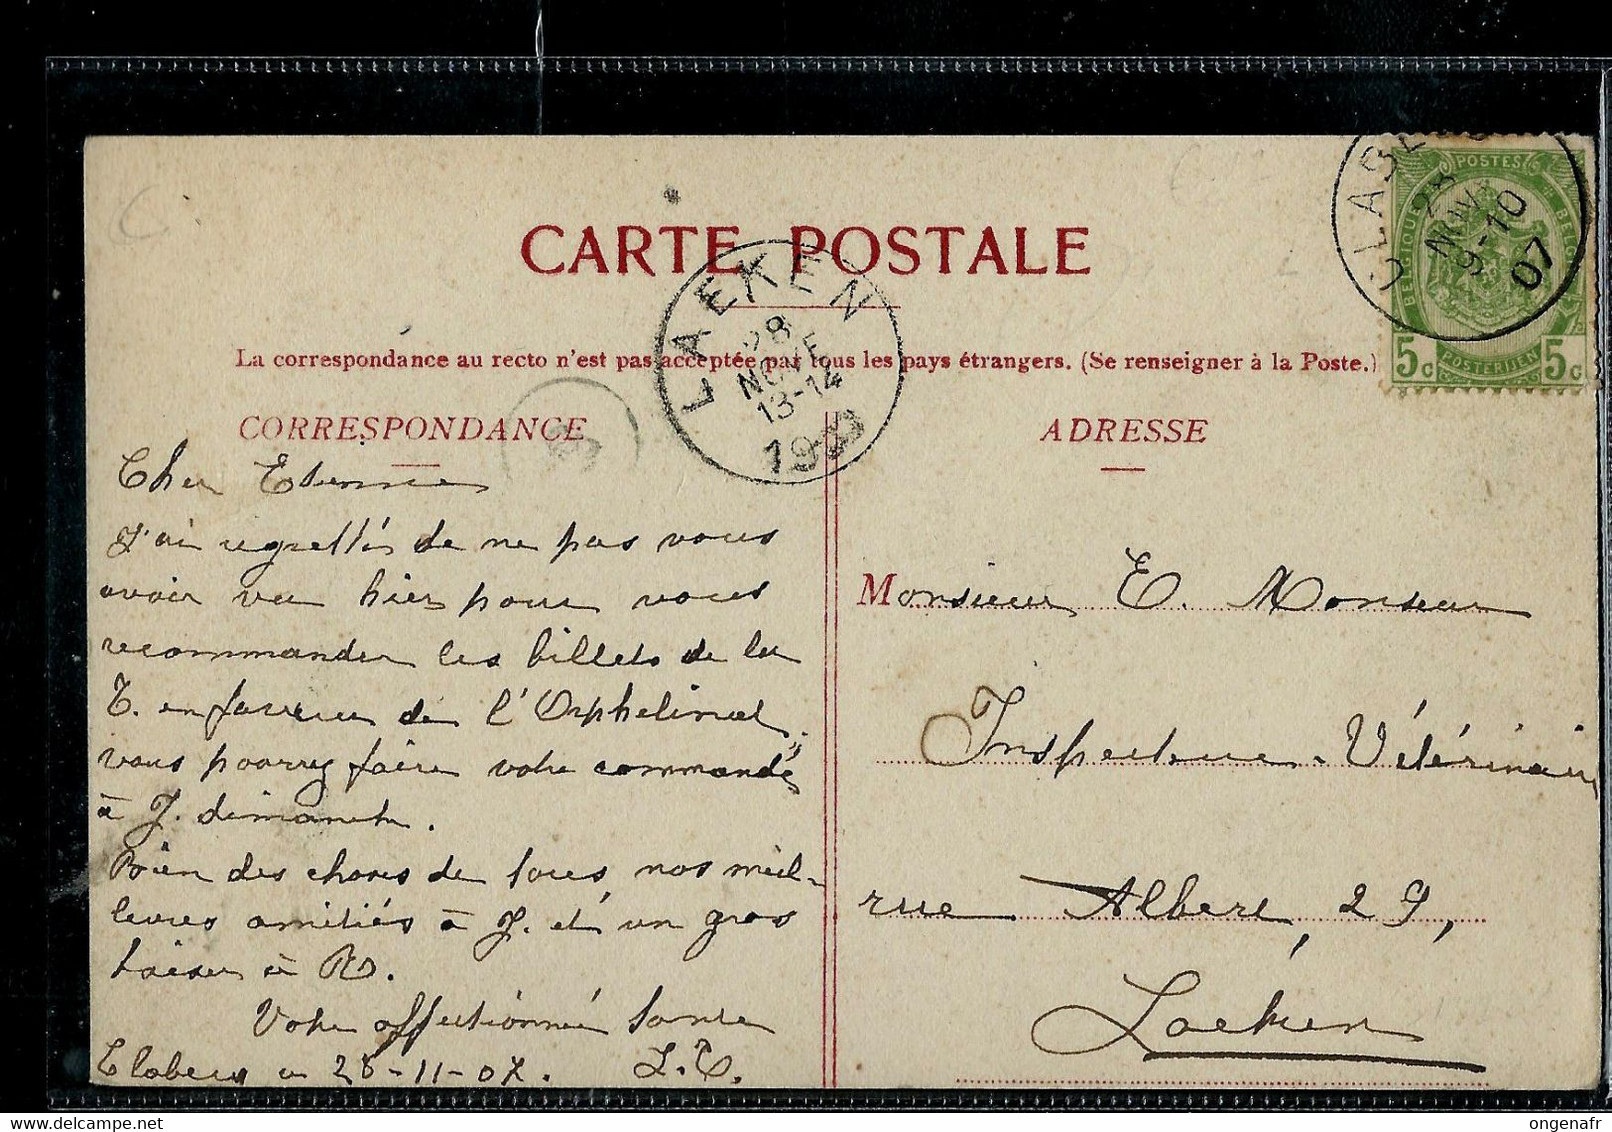 CARTE POSTALE
La correspondance au recto n'est pas acceptée par tous les pays étrangers. (Se renseigner à la Poste.)
CORRESPONDANCE
ADRESSE
LAEKEN
28
NOVE
13-14
CLABE
28
NOV
9-10
07
POSTES
BELGIQUE
5c
POSTERIJEN
5c
Cher Etienne
J'ai regretté de ne pas vous
avoir vu hier pour vous
recommander les billets de la
T. en faveur de l'Orphelinat.
vous pourrez faire votre commande
à J. dimanche.
Bien des choses de tous, nos meil-
leures amitiés à J. et un gros
baiser à R.
Votre affectionnée tante
Clabecq 28-11-07. L.C.
Monsieur E. Monseur
Inspecteur-Vétérinaire
rue Albert, 29,
Laeken
ongenafr